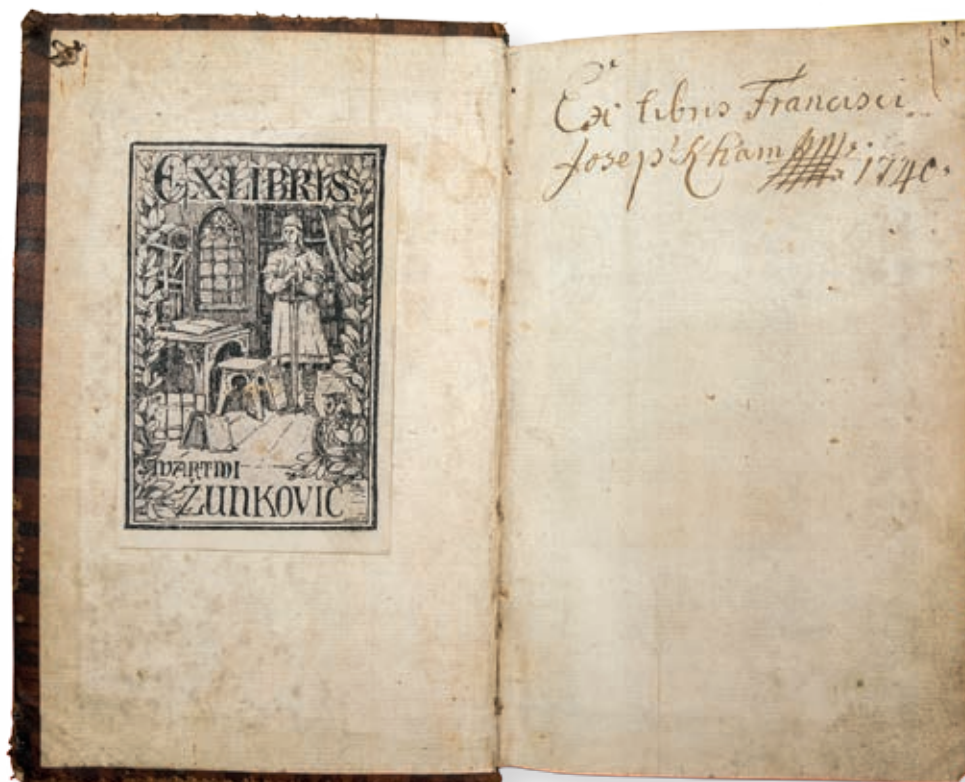 EX·LIBRIS·
MARTINI
ŽUNKOVIČ
Ex libris Francisci
Joseph Kham
1740.